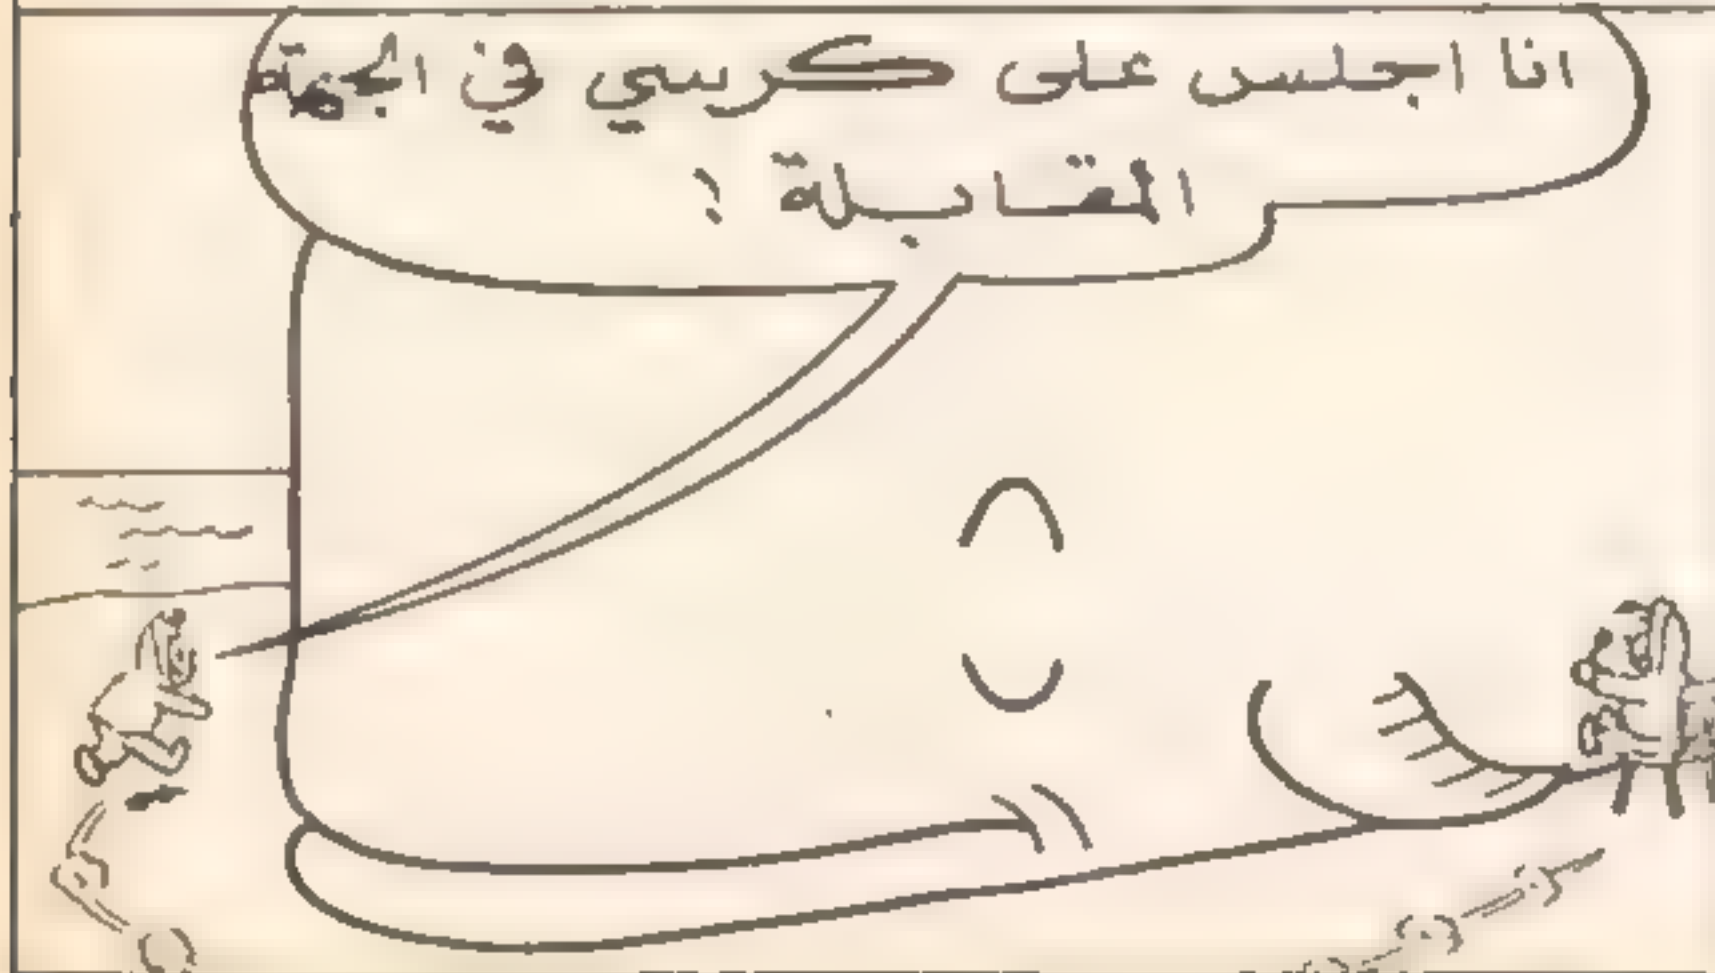 انا اجلس على كرسي في الجهة
المقابلة !